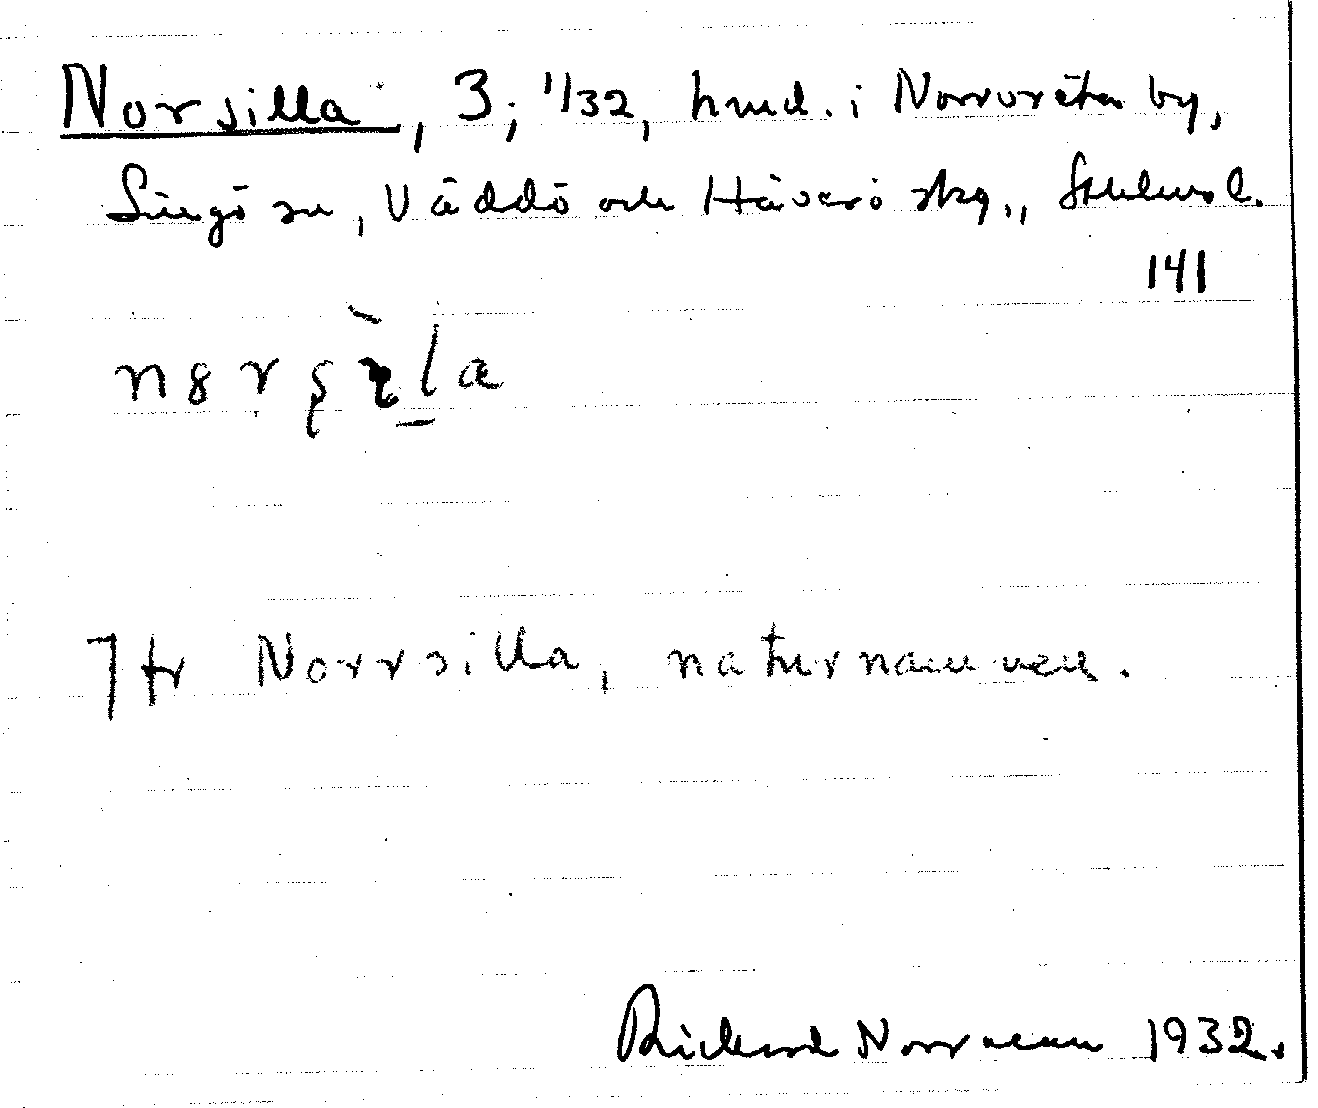 Norsilla, 3; 1/32, hmd. i Norrvreta by,
Singö sn, Väddö och Häverö skg., Sthlms l.
141
Jfr Norrsilla, naturnamnen.
Rickard Norrman 1932.